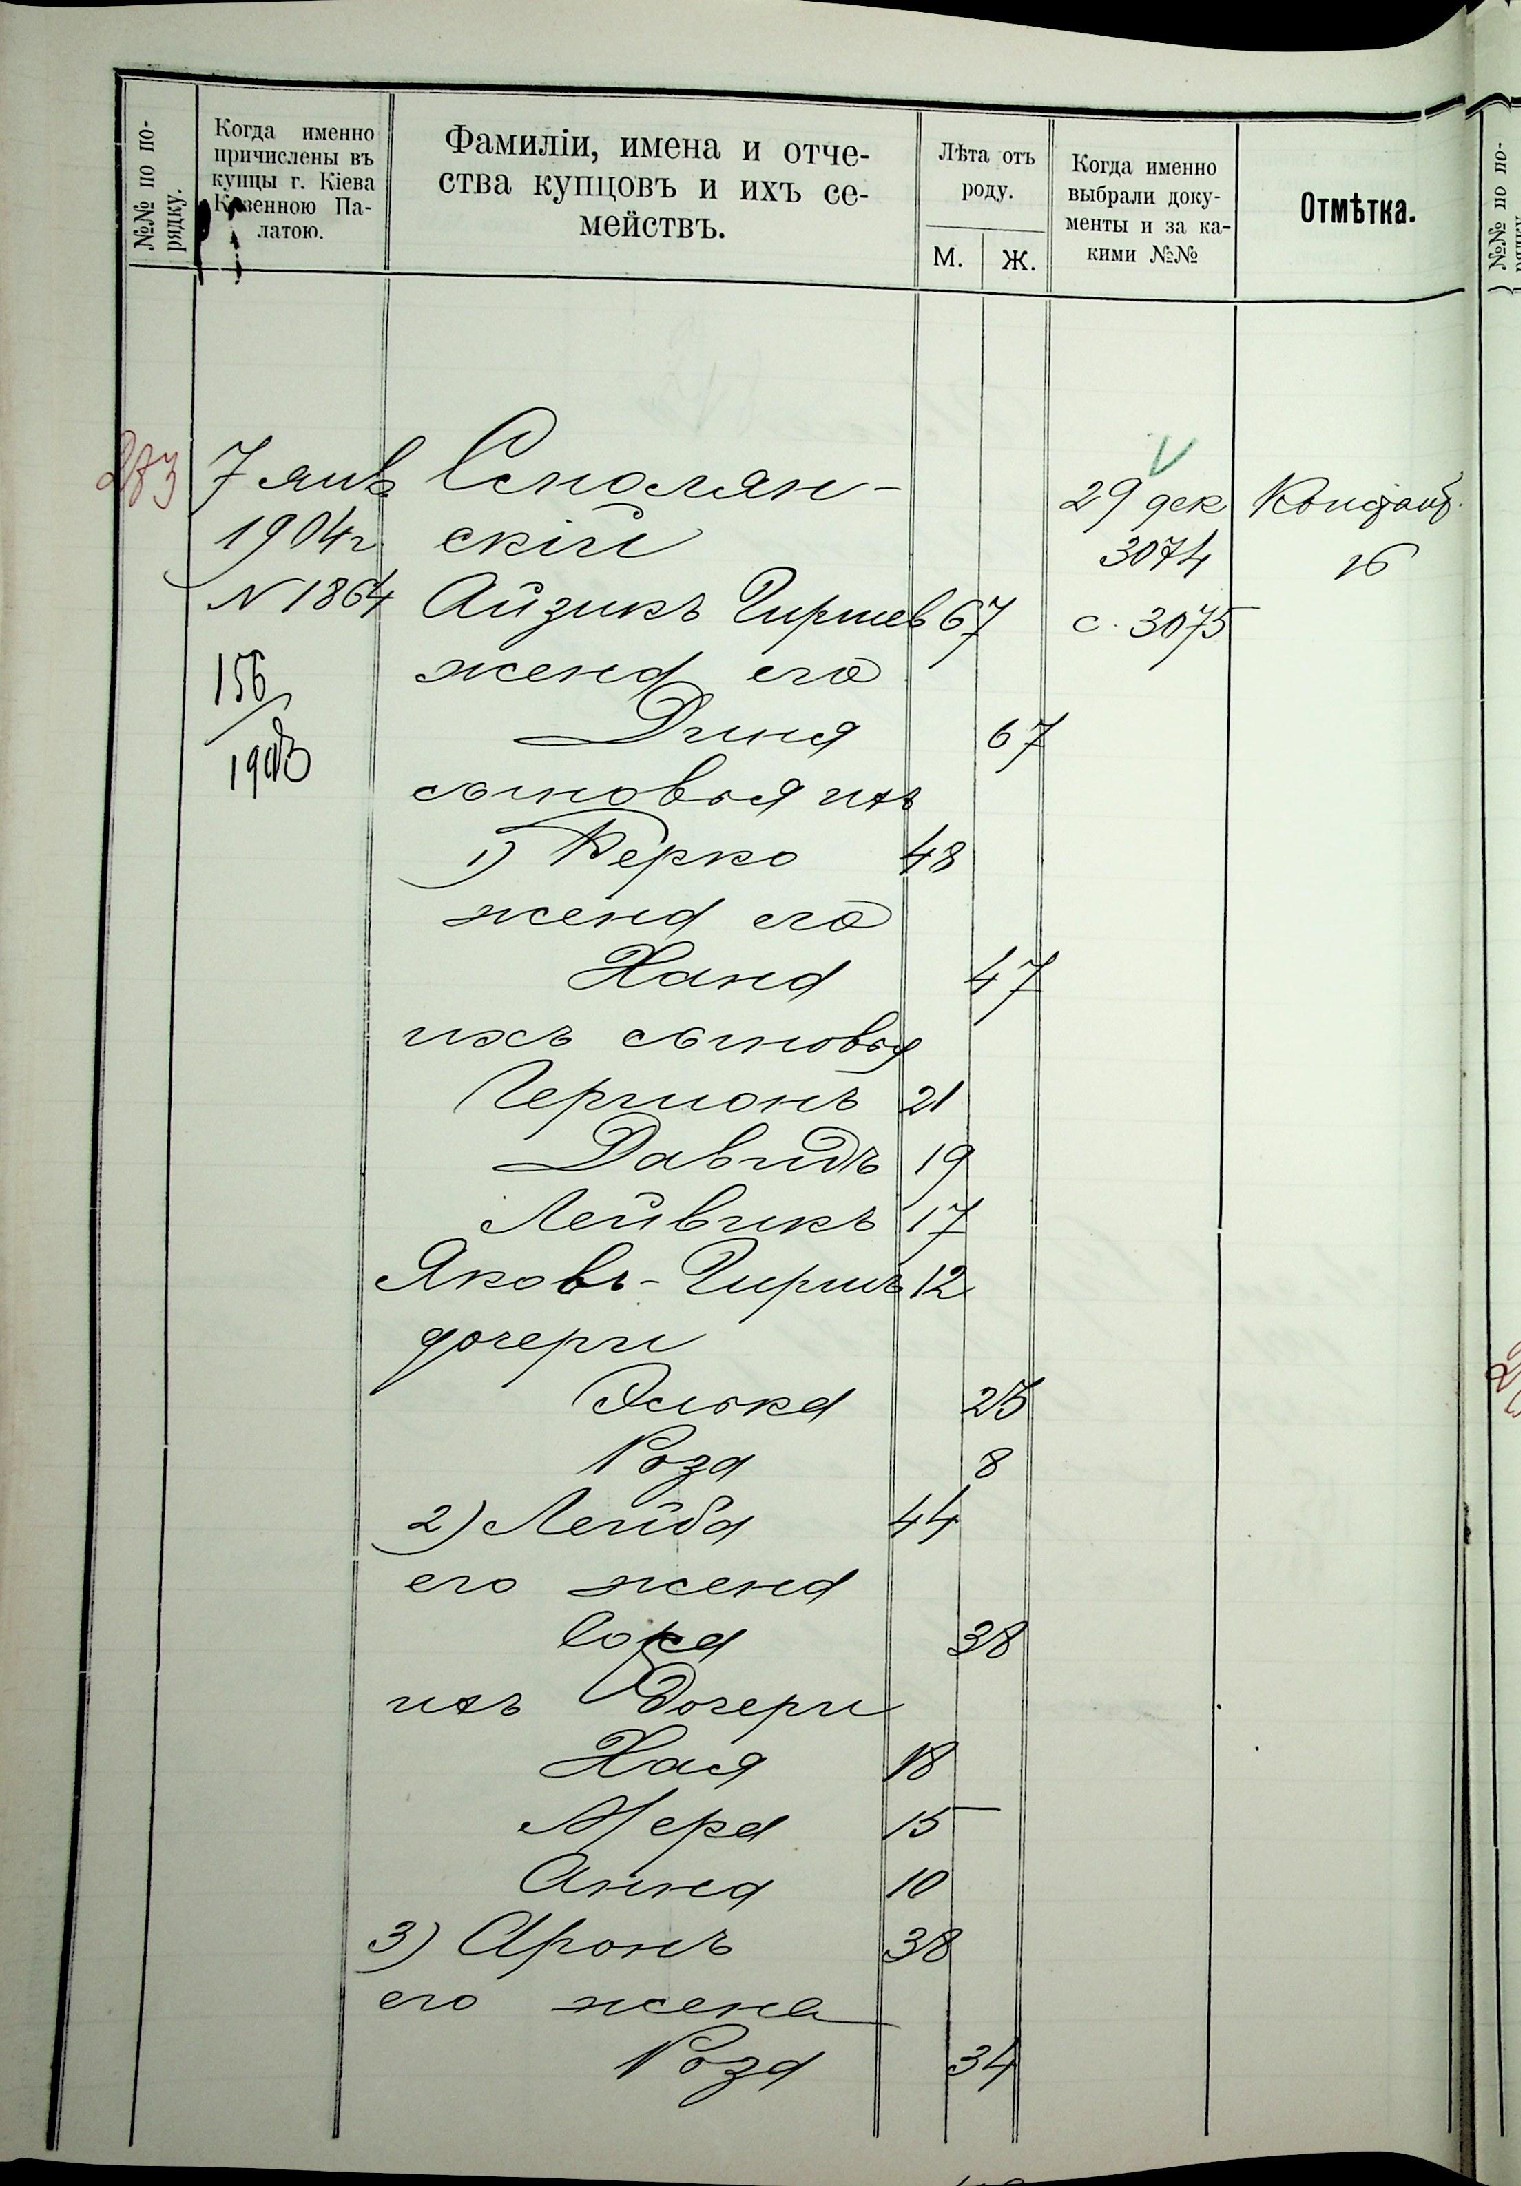 №№ по по-
рядку.
Когда именно
причислены въ
купцы г. Кіева
Казенною Па-
латою.
Фамиліи, имена и отче-
ства купцовъ и ихъ се-
мействъ.
Лѣта отъ
роду.
М. Ж.
Когда именно
выбрали доку-
менты и за ка-
кими №№
Отмѣтка.
№№ по по-
273 7 янв 29 дек
1904г. скій 3074 16
N 1864 Айзикъ Гиршев 67 с. 3075
156
жена его
1903
Дина 67
сыновья ихъ
1) Берко 48
жена его
Хана 47
ихъ сыновья
Гершонъ 21
Давидъ 19
Лейвикъ 17
Яковъ-Гиршъ 12
дочери
Элька 23
Роза 8
2) Лейба 44
его жена
Сора 38
ихъ дочери
Хая 18
Мера 15
Анна 10
3) Аронъ 38
его жена
Роза 34